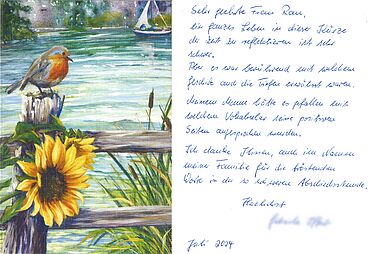 Sehr geehrte Frau Rau,
ein ganzes Leben in dieser Kürze
der Zeit zu reflektieren ist sehr
schwer.
es war berührend mit welchem
Geschick auch die Tiefen erwähnt wurden.
Meinem Mann hätte es gefallen mit
welchem Vokabular seine positiven
Seiten angesprochen wurden.
Ich danke Ihnen, auch im Namen
meiner Familie für die tröstenden
Worte in der so schweren Abschiedsstunde.
Herzlichst
Juli 2024